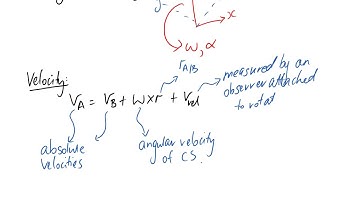 y
x
ω, α
r A/B
Velocity:
V_A = V_B + ω×r + V_rel
measured by an
observer attached
to rotat
absolute
velocities
angular velocity
of CS.